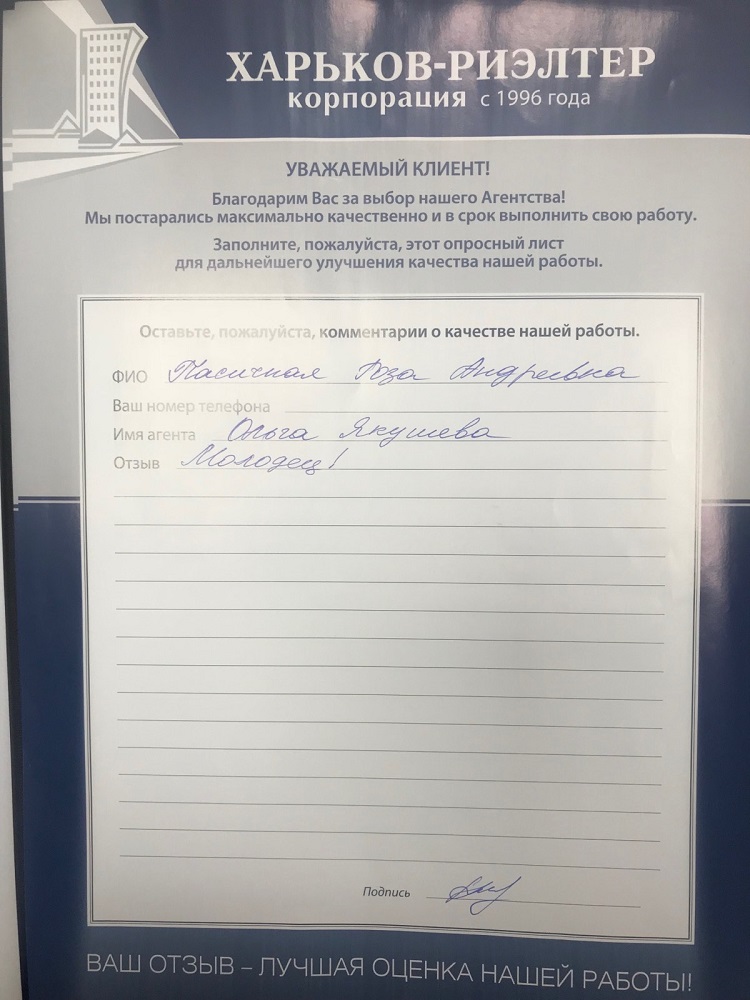 ХАРЬКОВ-РИЭЛТЕР
корпорация с 1996 года
УВАЖАЕМЫЙ КЛИЕНТ!
Благодарим Вас за выбор нашего Агентства!
Мы постарались максимально качественно и в срок выполнить свою работу.
Заполните, пожалуйста, этот опросный лист
для дальнейшего улучшения качества нашей работы.
Оставьте, пожалуйста, комментарии о качестве нашей работы.
ФИО Пасичная Роза Андреевна
Ваш номер телефона
Имя агента Ольга Якушева
Отзыв Молодец!
Подпись
ВАШ ОТЗЫВ – ЛУЧШАЯ ОЦЕНКА НАШЕЙ РАБОТЫ!